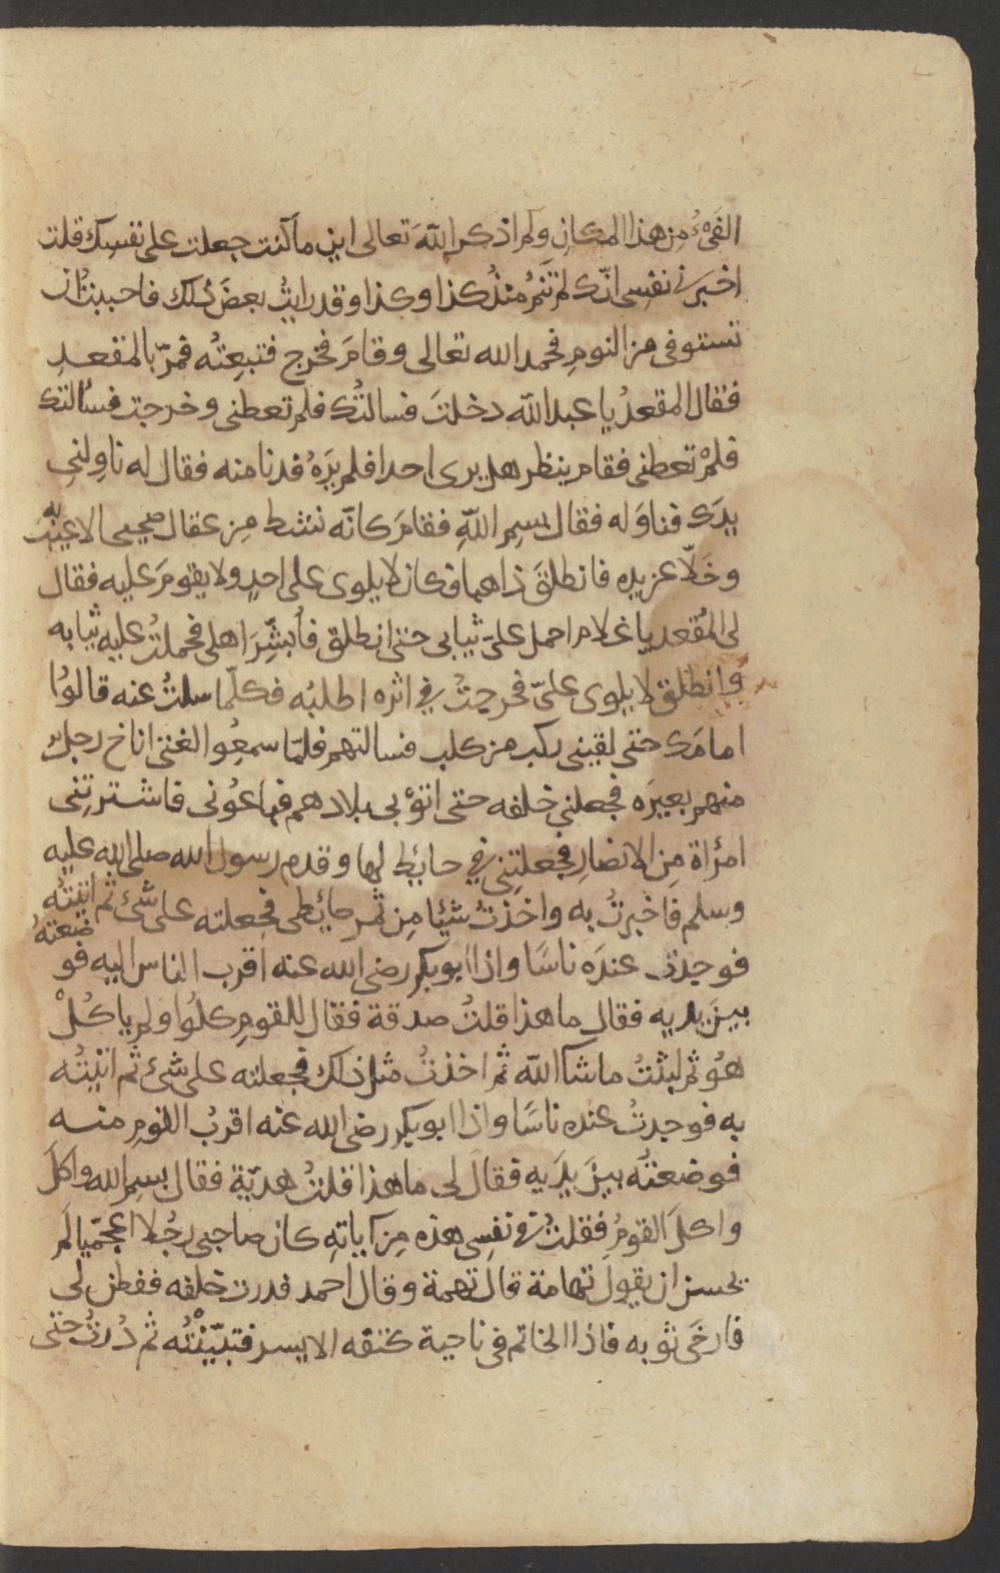 الفَيْءُ مِن هذا المكانِ ولم اذكر اللّهَ تعالى اين ما كنت جعلت على نفسِك قلت
اخبرني نفسى انّك لم تَنَمْ منذُ كذا وكذا وقد رايتُ بعضَ ذلك فاحببتُ ان
تستوفى من النومِ فحمد الله تعالى وقامَ فخرج فتبِعتُه فمرّ بالمقعدِ
فقال المقعدُ يا عبد اللّه دخلتَ فسالتُك فلم تعطنى وخرجت فسالتك
فلمْ تعطنى فقام ينظر هل يرى احدا فلم يرَهُ فدنا منه فقال له ناوِلنى
يدَك فناوَله فقال بسمِ اللّهِ فقامَ كانّه نشط مِن عقال صحيحى لا عيْبَ به
وخَلّا عن يده فانطلقَ ذاهبا فكان لا يلوى على احدٍ ولا يقومَ عليه فقال
لى المُقعد يا غلام احمل علىّ ثيابى حتى انطلق فأُبشِّرَ اهلى فحملتُ عليه ثيابه
وانطلق لا يلوى علىّ فخرجتُ في اثره اطلبُه فكلّما سالتُ عنه قالوُا
امامَك حتى لقينى ركب من كلب فسالتهم فلمّا سمعُوا لغتى اناخ رجلٌ
منهم بعيرَه فجعلنى خلفه حتى اتوْ بى بلادهم فباعُونى فاشترتِنى
امرُاة مِن الانصارِ فجعلتِنى فى حائِط لها وقدم رسول الله صلى الله عليه
وسلم فاخبرتُ به واخذتُ شيْا مِن ثمر حائطى فجعلته على شئ ثم اتيتُه
فوجدتُ عندَه ناسًا واذا ابو بكر رضى الله عنه اقرب الناس اليه فوضعتهُ
بينَ يديه فقال ما هذا قلتُ صدقة فقال للقومِ كلُوا ولم ياكُلْ
هُو ثم لبثتُ ما شا اللّه ثم اخذتُ مثل ذلك فجعلته على شئ ثم اتيْتُه
به فوجدتُ عنده ناسًا واذا ابو بكر رضى الله عنه اقربُ القومِ منه
فوضعتُه بينَ يدَيه فقالَ لى ما هذا قلتُ هديّة فقال بسمِ الله واكلَ
واكلَ القومُ فقلتُ فى نفسِى هذه مِن آياتِهِ كان صاحبى رجُلا اعجمّيا لَم
يحسن ان يقولَ تهامة قالَ تهمة وقال احمد فدرت خلفه ففطن لى
فارخَى ثوبه فاذا الخاتم فى ناحية كتفه الايسر فتبيّنْتُه ثم دُرتُ حتى